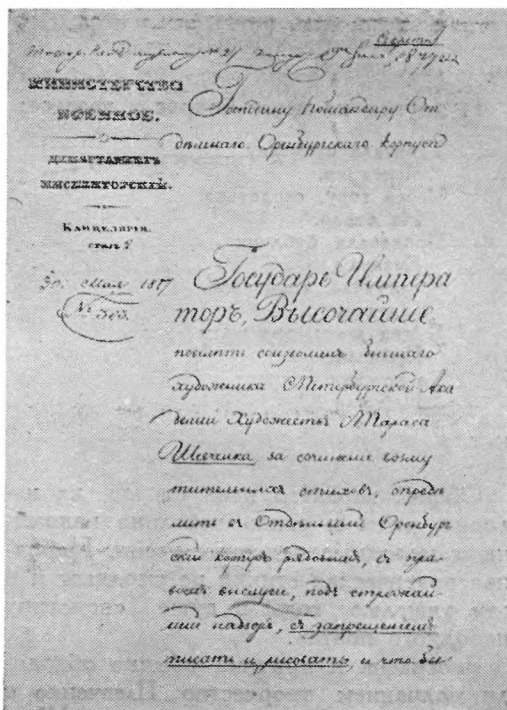 Секретно
1847 года
МИНИСТЕРСТВО
ВОЕННОЕ.
ДЕПАРТАМЕНТЪ
ИНСПЕКТОРСКІЙ.
КАНЦЕЛЯРІЯ.
столъ 2
30. Мая 1847
№ 565
Господину Командиру От
дѣльнаго Оренбургскаго Корпуса
Государь Импера
торъ, Высочайше
повелѣть соизволилъ бывшаго
художника С. Петербургской Ака
деміи Художествъ Тараса
Шевченка, за сочиненіе возму
тительныхъ стиховъ, опредѣ
лить въ Отдѣльный Оренбург
скій корпусъ рядовымъ, съ пра
вомъ выслуги, подъ строжай
шій надзоръ, съ запрещеніемъ
писать и рисовать, и что бы